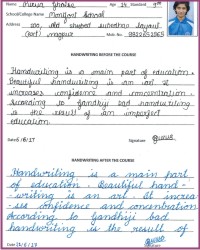 Name Age 14 Standard 9th
School/College Name Montfort School
Address
(east) Nagpur Mob. No.
HANDWRITING BEFORE THE COURSE
Handwriting is a main part of education.
Beautiful handwriting is an art. It
increases confidence and concentration
According to Gandhiji bad handwriting
is the result of an imperfect
education.
Date 6/6/17 Signature
HANDWRITING AFTER THE COURSE
Handwriting is a main part
of education. Beautiful hand-
-writing is an art. It increa-
-ses confidence and concentration
According to Gandhiji bad
handwriting is the result of
Date 21/6/17